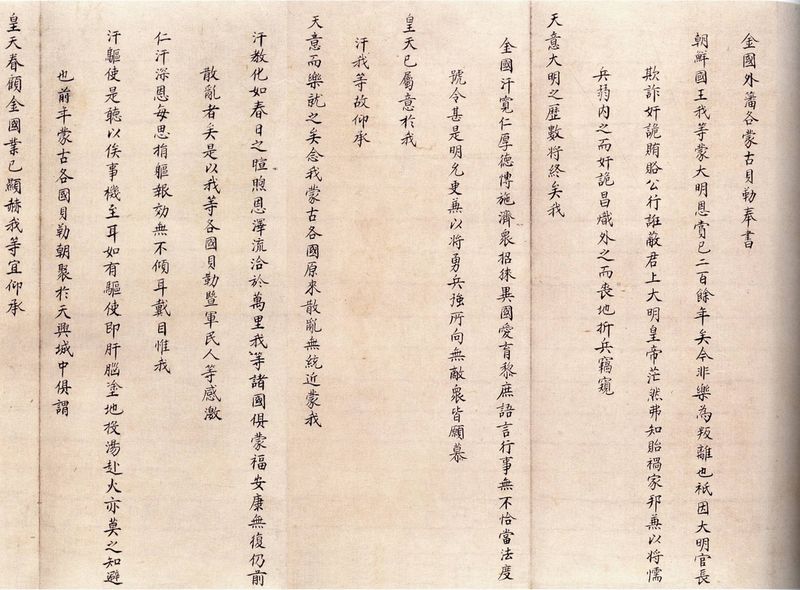 金國外藩各蒙古貝勒奉書
朝鮮國王我等蒙大明恩賞已二百餘年矣今非樂為叛離也祇因大明官長
欺詐奸詭賄賂公行誑蔽君上大明皇帝茫然弗知貽禍家邦兼以將懦
兵弱內之而奸詭昌熾外之而喪地折兵竊窺
天意大明之歷數將終矣我
金國汗寬仁厚德博施濟衆招徠異國愛育黎庶語言行事無不恰當法度
號令甚是明允更兼以將勇兵強所向無敵衆皆願慕
皇天已屬意於我
汗我等故仰承
天意而樂就之矣念我蒙古各國原來散亂無統近蒙我
汗教化如春日之暄煦恩澤流洽於萬里我等諸國俱蒙福安康無復仍前
散亂者矣是以我等各國貝勒暨軍民人等感激
仁汗深恩每思捐軀報効無不傾耳戴目惟我
汗驅使是聽以俟事機至耳如有驅使即肝腦塗地投湯赴火亦莫之知避
也前年蒙古各國貝勒朝聚於天興城中俱謂
皇天眷顧金國業已顯赫我等宜仰承